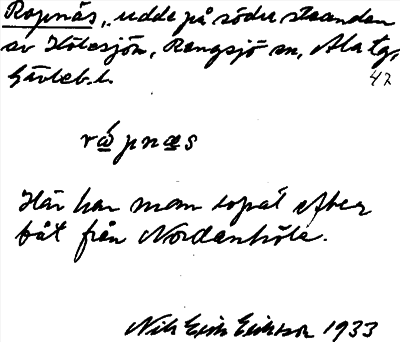 Ropnäs, udde på södra stranden
av Hölesjön, Rengsjö sn, Ala tg,
Gävleb. l. 42
rápnæs
Här har man ropat efter
båt från Nordanhöle.
Nils Erik Eriksson 1933